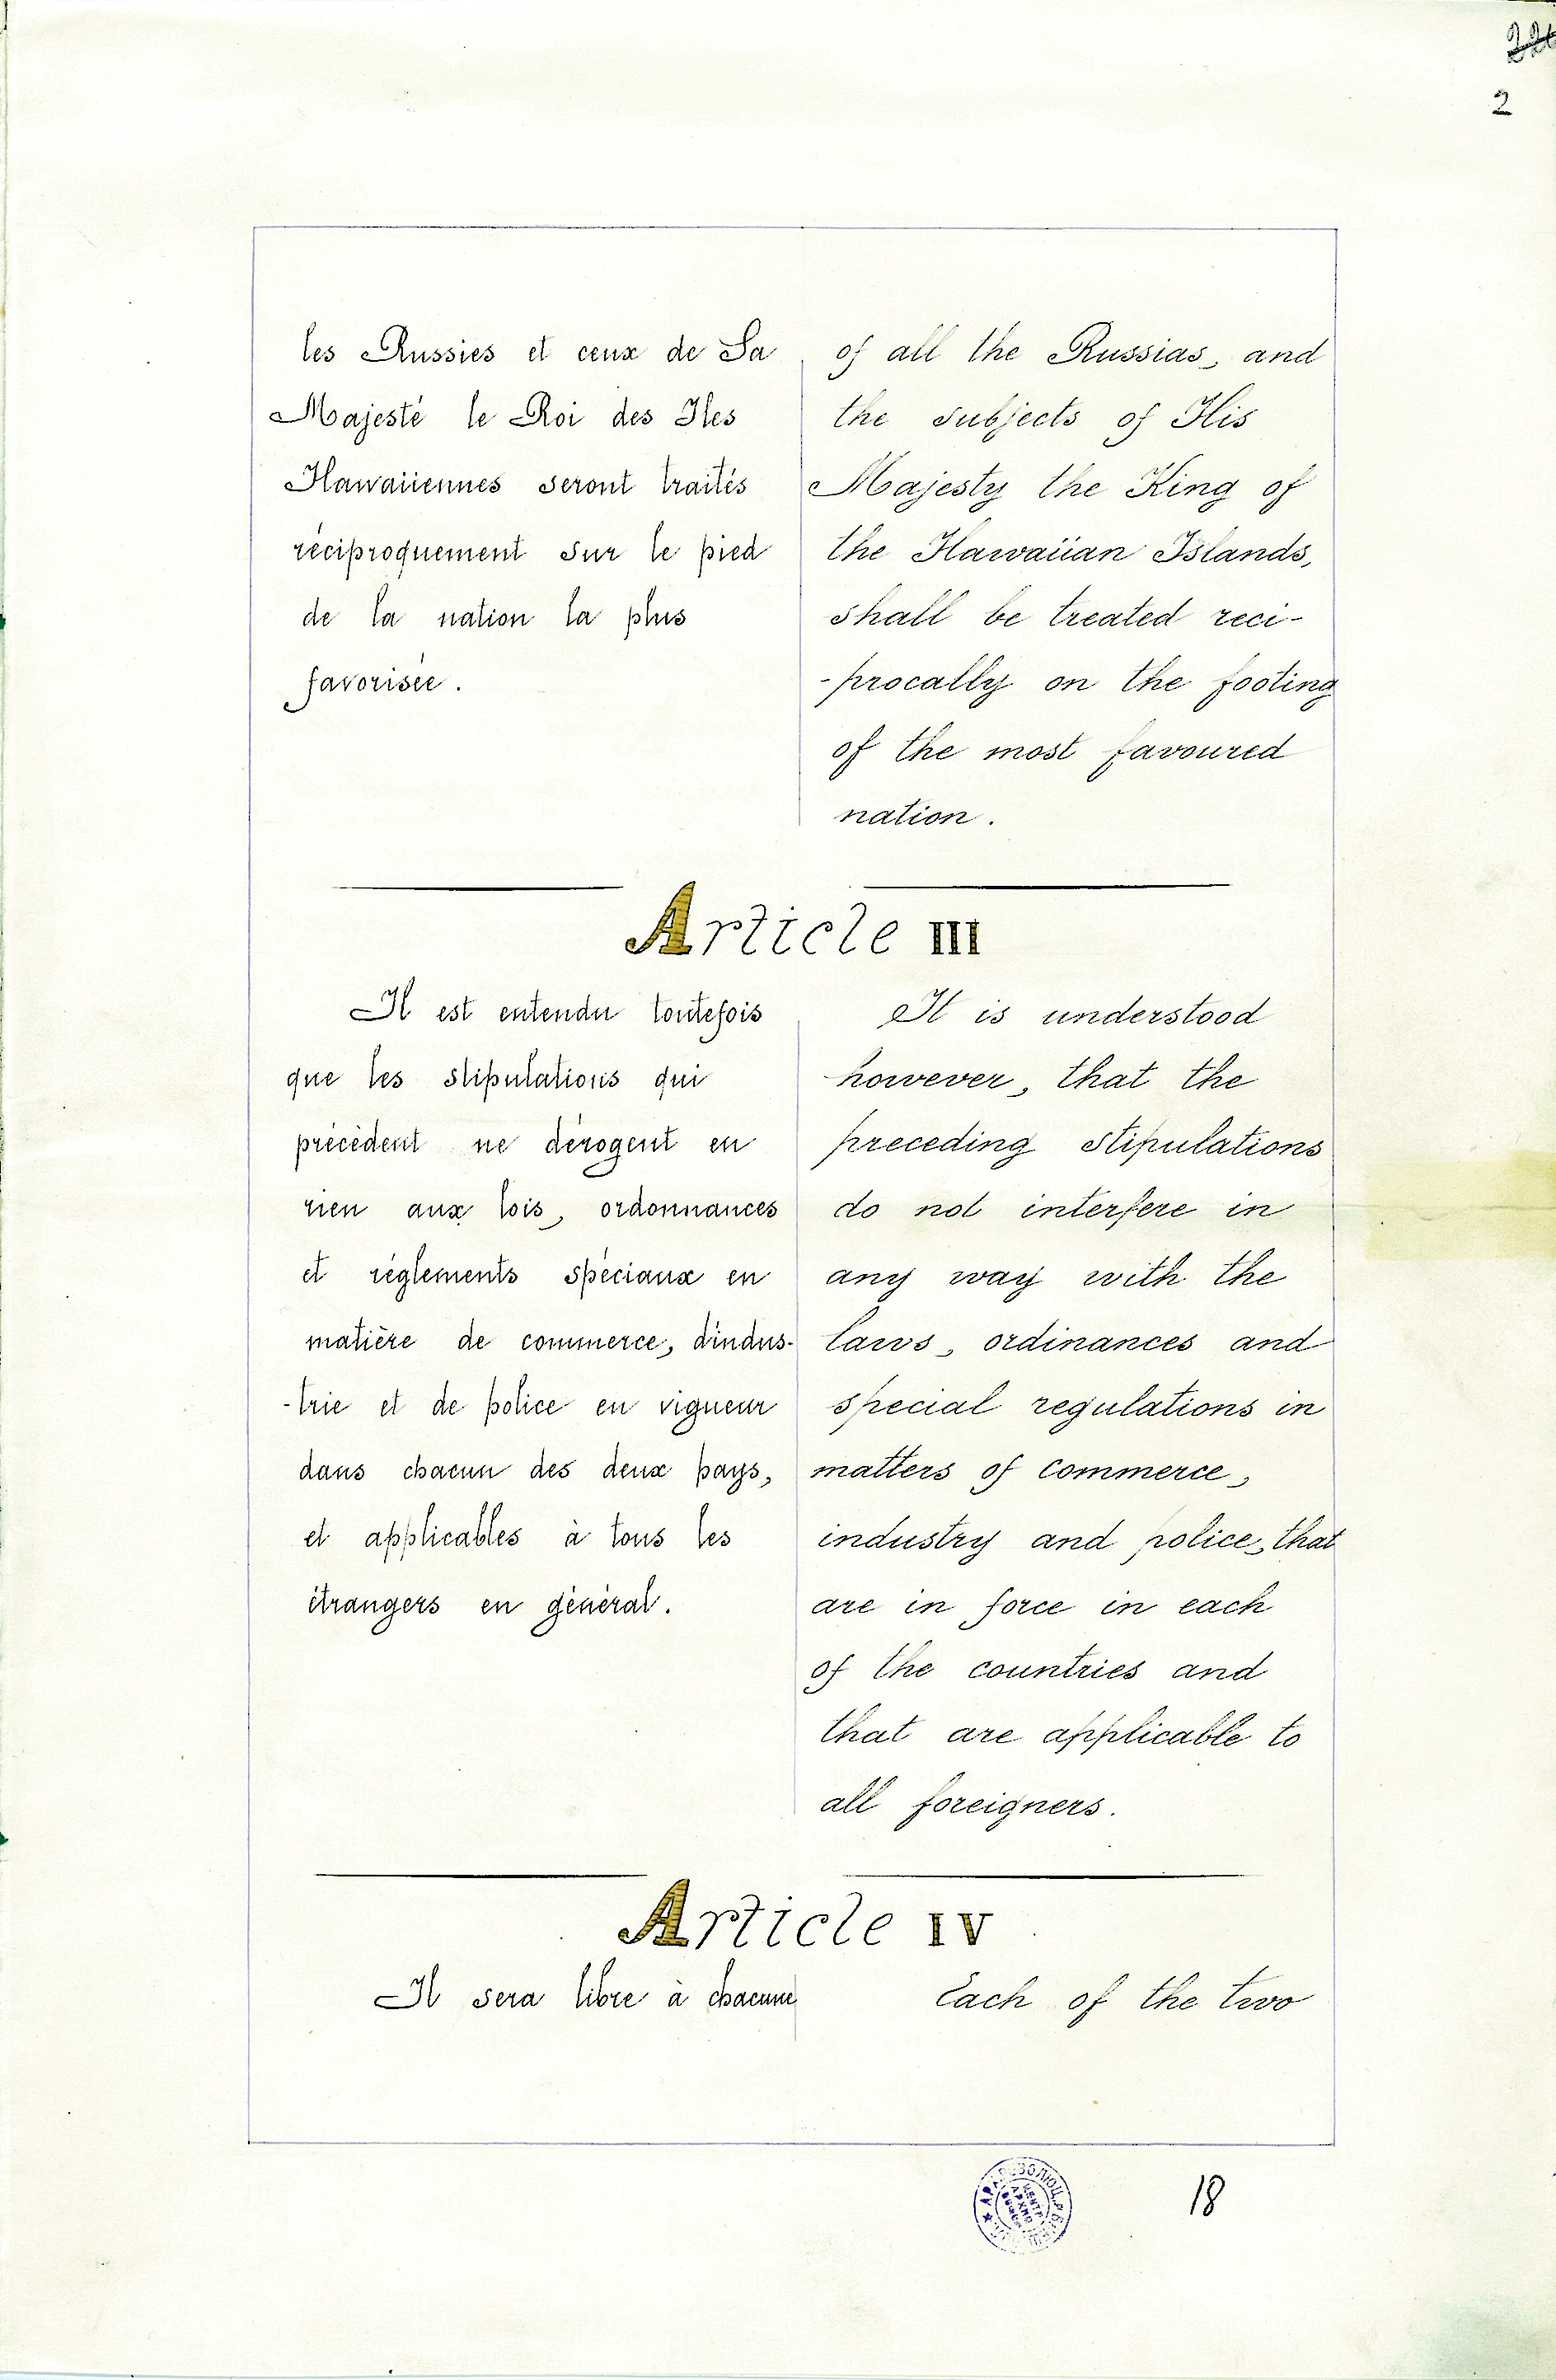 2
les Russies et ceux de Sa
Majesté le Roi des Iles
Hawaiiennes seront traités
réciproquement sur le pied
de la nation la plus
favorisée.
of all the Russias, and
the subjects of His
Majesty the King of
the Hawaiian Islands,
shall be treated reci-
-procally on the footing
of the most favoured
nation.
Article III
Il est entendu toutefois
que les stipulations qui
précèdent ne dérogent en
rien aux lois, ordonnances
et règlements spéciaux en
matière de commerce, d'indus-
-trie et de police en vigueur
dans chacun des deux pays,
et applicables à tous les
étrangers en général.
It is understood
however, that the
preceding stipulations
do not interfere in
any way with the
laws, ordinances and
special regulations in
matters of commerce,
industry and police, that
are in force in each
of the countries and
that are applicable to
all foreigners.
Article IV
Il sera libre à chacune
Each of the two
18